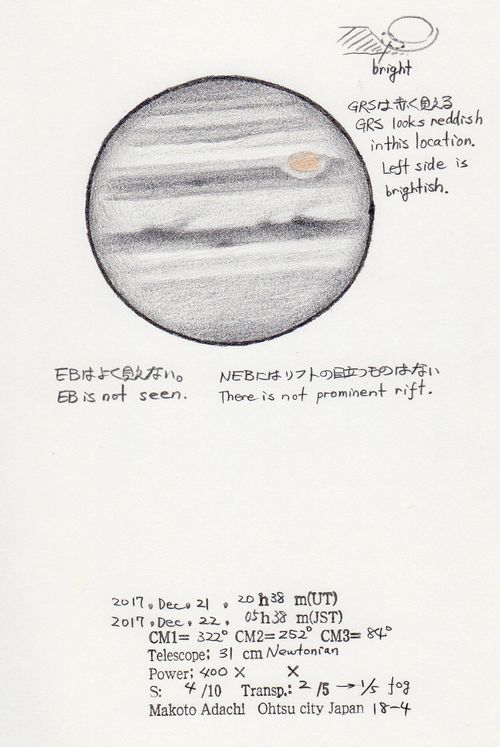 bright
GRSは赤く見える
GRS looks reddish
in this location.
Left side is
brightish.
EBはよく見えない。
EB is not seen.
NEBにはリフトの目立つものはない
There is not prominent rift.
2017, Dec, 21, 20h38 m(UT)
2017, Dec, 22, 05h38 m(JST)
CM1= 322° CM2= 252° CM3= 84°
Telescope: 31 cm Newtonian
Power: 400 × ×
S: 4 /10 Transp.: 2 /5 → 1/5 fog
Makoto Adachi Ohtsu city Japan 18-4